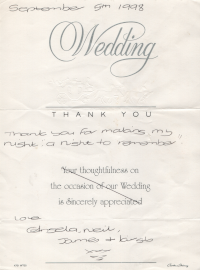 September 5th 1998
Wedding
THANK YOU
Thank you for making my
night a night to remember
Your thoughtfulness on
the occasion of our Wedding
is Sincerely appreciated
Love
Angela, Neil,
James +
xxx